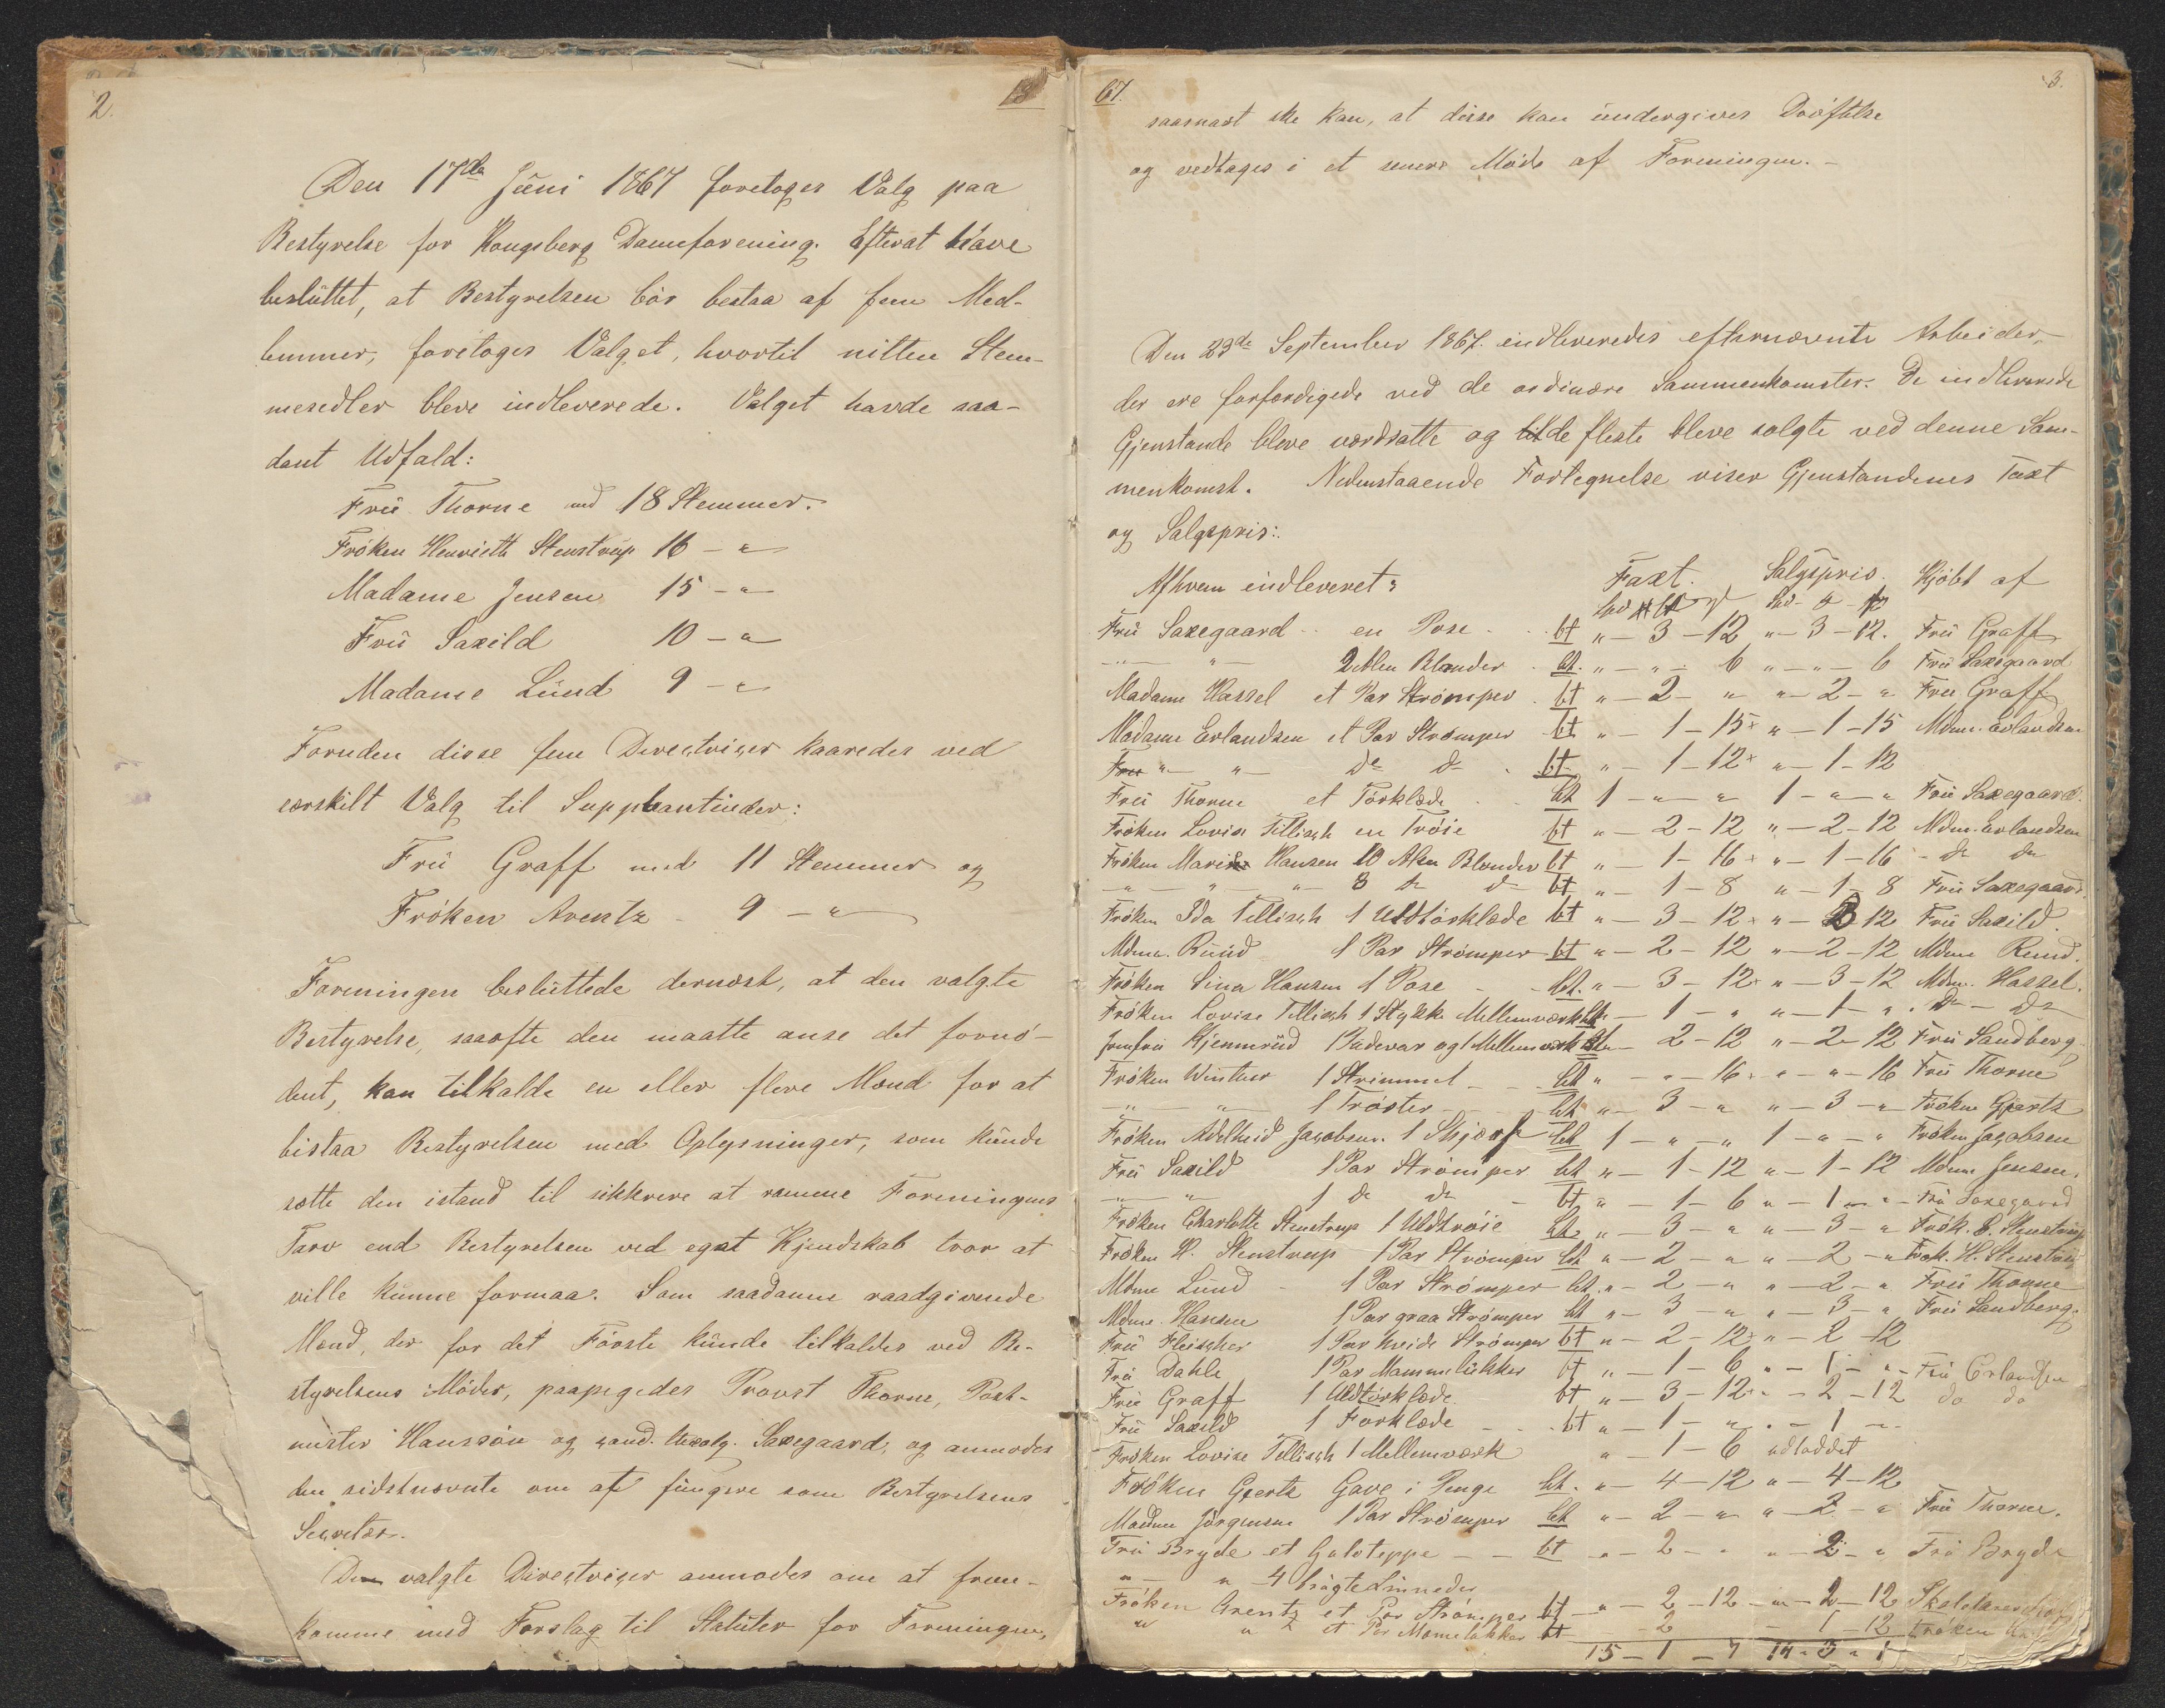 2.
Den 17de Juni 1867 foretoges Valg paa
Bestyrelse for Kongsberg Dameforening. Efterat have
besluttet, at Bestyrelsen bør bestaa af fem Med-
lemmer, foretoges Valget, hvortil nitten Stem-
mesedler bleve indleverede. Valget havde saa-
dant Udfald:
Frü Thorne med 18 Stemmer.
Frøken Henriette Stenstrup 16 - "
Madame Jensen 15 - "
Frü Saxild 10 - "
Madame Lünd 9 - "
Foruden disse fem Directricer kaaredes ved
særskilt Valg til Suppleantinder:
Frü Graff med 11 Stemmer og
Frøken Arentz - 9 - "
Foreningen besluttede dernæst, at den valgte
Bestyrelse, saaofte den maatte anse det fornø-
dent, kan tilkalde en eller flere Mænd for at
bistaa Bestyrelsen med Oplysninger, som kunde
sætte den istand til sikkrere at ramme Foreningens
Tarv end Bestyrelsen ved eget Kjendskab tror at
ville kunne formaa. Som saadanne raadgivende
Mænd, der for det Første kunde tilkaldes ved Be-
styrelsens Møder, paapegedes Provst Thorne, Post-
mester Hanssøn og cand. theolg. Saxegaard, og anmodes
den sidstnævnte om at fungere som Bestyrelsens
Secretær.
De valgte Directricer anmodes om at frem-
komme med Forslag til Statuter for Foreningen,
67.
3.
saasnart ske kan, at disse kan undergives Drøftelse
og vedtages i et senere Møde af Foreningen. -
Den 23de September 1867. indleveredes efternævnte Arbeider,
der ere forfærdigede ved de ordinære Sammenkomster. De indleverede
Gjenstande bleve værdsatte og de fleste bleve solgte ved denne Sam-
menkomst. Nedenstaaende Fortegnelse viser Gjenstandenes Taxt
og Salgspris:
Afhvem indleveret: Taxt. Salgspris. Kjöbt af
Frü Saxegaard en Pose bt " - 3 - 12 " - 3 - 12. Frü Graff
" " 2 Alen Blonder bt. " - " - 6 " - " - 6 Frü Saxegaard
Madame Hassel et Par Strømper bt " - 2 - " " - 2 - " Frü Graff
Madame Erlandsen et Par Strømper bt " - 1 - 15 " - 1 - 15 Mdm. Erlandsen
" " do do bt " - 1 - 12 " - 1 - 12
Frü Thorne et Tørklæde bt 1 - " - " 1 - " - " Frü Saxegaard.
Frøken Lovise Tellisch en Trøie bt " - 2 - 12 " - 2 - 12 Mdm. Erlandsen
Frøken Marie Hansen 10 Alen Blonder bt " - 1 - 16 " - 1 - 16 - do do
" " " 8 do do bt " - 1 - 8 " - 1 - 8 Frü Saxegaard.
Frøken Ida Tellisch 1 Uldtørklæde bt " - 3 - 12 " - 3 - 12 Frü Saxild.
Mdme. Ruud 1 Par Strømper bt " - 2 - 12 " - 2 - 12 Mdme Ruud.
Frøken Sina Hansen 1 Pose bt. " - 3 - 12 " - 3 - 12 Mdm. Hassel.
Frøken Lovise Tellisch 1 Stykke Mellemværk bt " - 1 - " " - 1 - " do - do
Jomfrü Kjennerüd 1 Pudevar og 1 Mellemværk bt " - 2 - 12 " - 2 - 12 Frü Sandberg
Frøken Winther 1 Strimmel bt " - " - 16 " - " - 16 Frü Thorne
" " 1 Trøster bt " - 3 - " " - 3 - " Frøken Geertz
Frøken Adelheid Jacobsen. 1 Skjærf bt 1 - " - " 1 - " - " Frøken Jacobsen
Frü Saxild 1 Par Strømper bt " - 1 - 12 " - 1 - 12 Mdme Jensen.
" " 1 do do bt " - 1 - 6 " - 1 - " Frü Saxegaard
Frøken Charlotte Stenstrup 1 Uldtrøie bt " - 3 - " " - 3 - " Frøk. C. Stenstrup
Frøken H. Stenstrup 1 Par Strømper bt " - 2 - " " - 2 - " Frøk. H. Stenstrup
Mdme Lund 1 Par Strømper bt. " - 2 - " " - 2 - " Frü Thorne
Mdme. Hansen 1 Par graa Strømper bt " - 3 - " " - 3 - " Frü Sandberg.
Frü Fleischer 1 Par hvide Strømper bt " - 2 - 12 " - 2 - 12
Frü Dahle 1 Par Mamelükker bt " - 1 - 6 " - 1 - " Frü Erlandsen
Frü Graff 1 Uldtørklæde bt " - 3 - 12 " - 2 - 12 do do
Frü Saxild 1 Forklæde bt " - 1 - " " - 1 - "
Frøken Lovise Tellisch 1 Mellemværk " - 1 - 6 udloddet
Frøken Geertz Gave i Penge bt. " - 4 - 12 " - 4 - 12
Madme Jørgensen 1 Par Strømper bt " - 2 - " " - 2 - " Frü Thorne.
Frü Bryde et Gulvteppe bt " - 2 - " " - 2 - " Frü Bryde
" " 4
Frøken Arentz et Par Strømper bt " - 2 - 12 " - 2 - 12
" " et Par Mamelukker bt - 2 - 1 - 12 Frøken
15 - 1 - 7 14 - 3 - 1